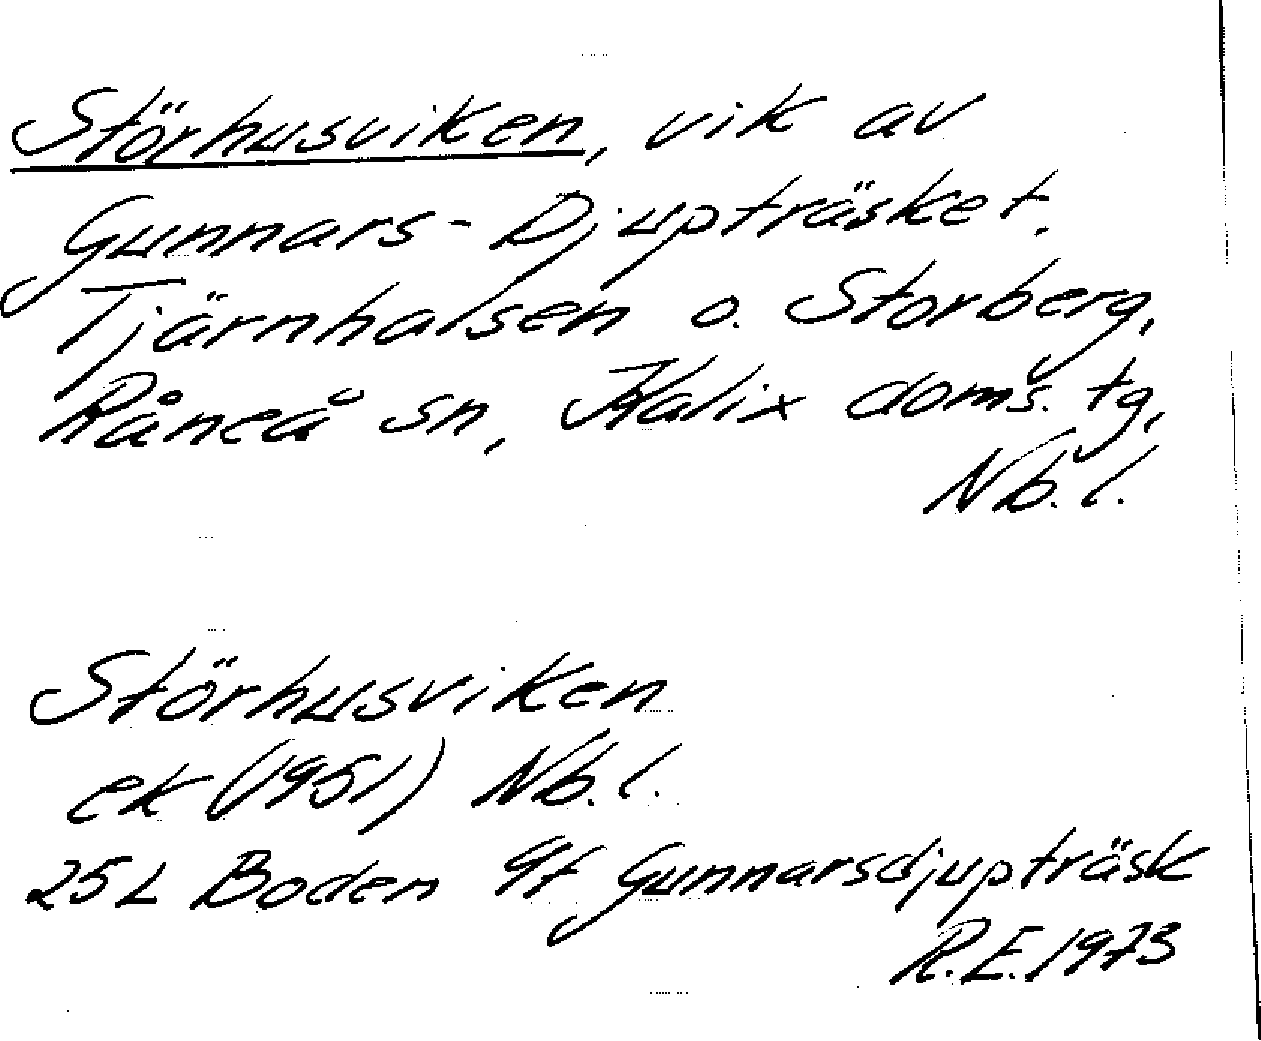 Störhusviken, vik av
Gunnars-Djupträsket.
Tjärnhalsen o. Storberg,
Råneå sn, Kalix doms. tg,
Nb. l.
Störhusviken
ek (1951) Nb. l.
25L Boden 9f Gunnarsdjupträsk
R.E. 1973